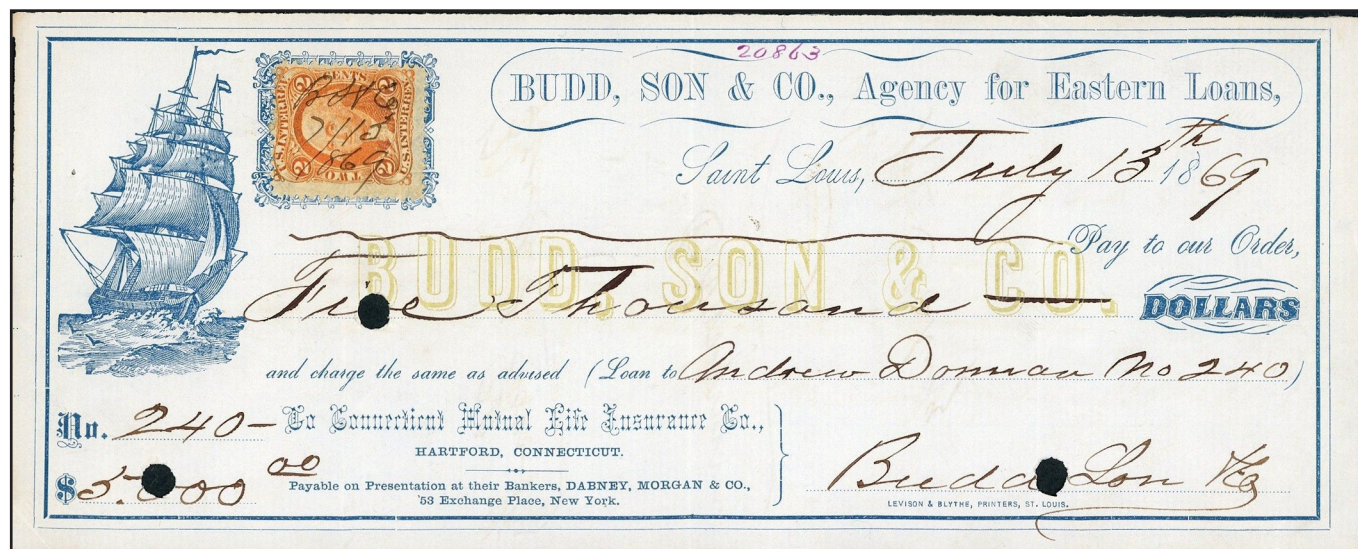 20863
BUDD, SON & CO., Agency for Eastern Loans,
U.S. INTER. REV.
TWO CENTS
2
7/13
1869
Saint Louis, July 13th 1869
Pay to our Order,
BUDD, SON & CO.
Five Thousand — DOLLARS
and charge the same as advised (Loan to Andrew Donnan No 240)
No. 240 — To Connecticut Mutual Life Insurance Co.,
HARTFORD, CONNECTICUT.
$5.000 00
Payable on Presentation at their Bankers, DABNEY, MORGAN & CO.,
53 Exchange Place, New York.
Budd Son & Co
LEVISON & BLYTHE, PRINTERS, ST. LOUIS.